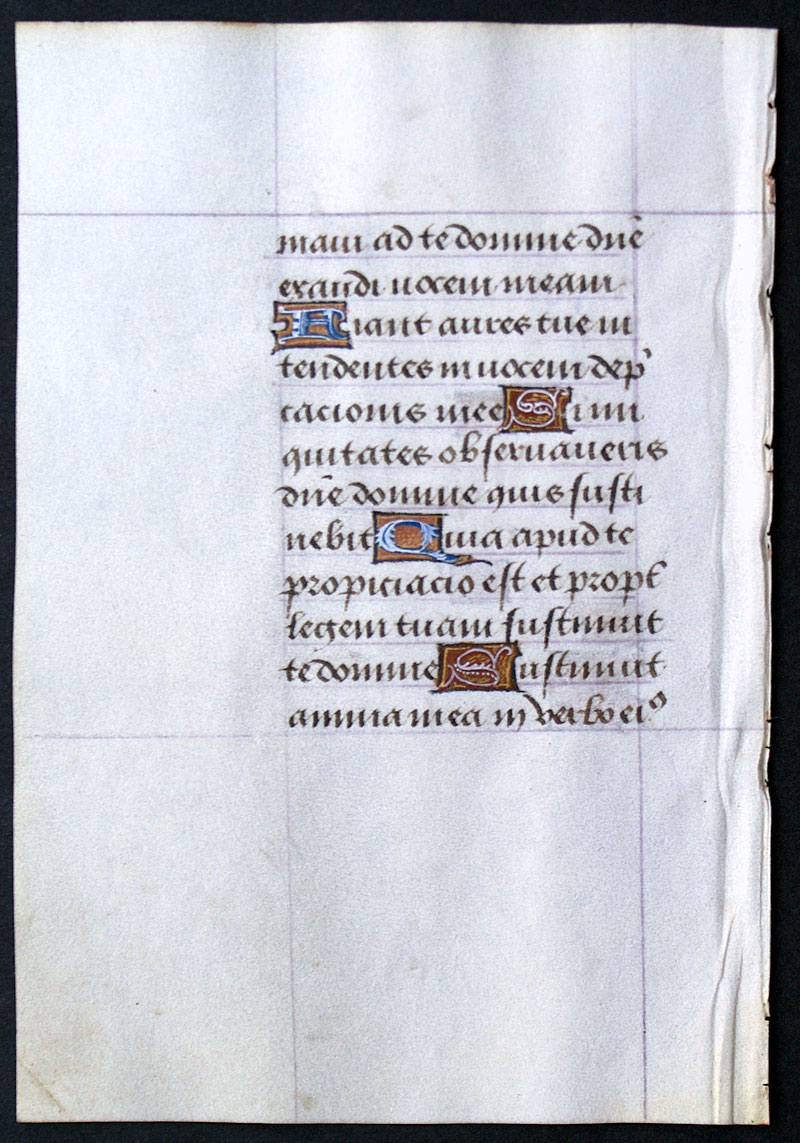 maui ad te domine dn̄e
exaudi uocem meam
Fiant aures tue in
tendentes in uocem dep̄
cacionis mee Si ini
quitates obseruaueris
dn̄e domine quis susti
nebit Quia apud te
propiciacio est et propt̄
legem tuam sustinuit
te domine Sustinuit
anima mea in verbo eiꝰ